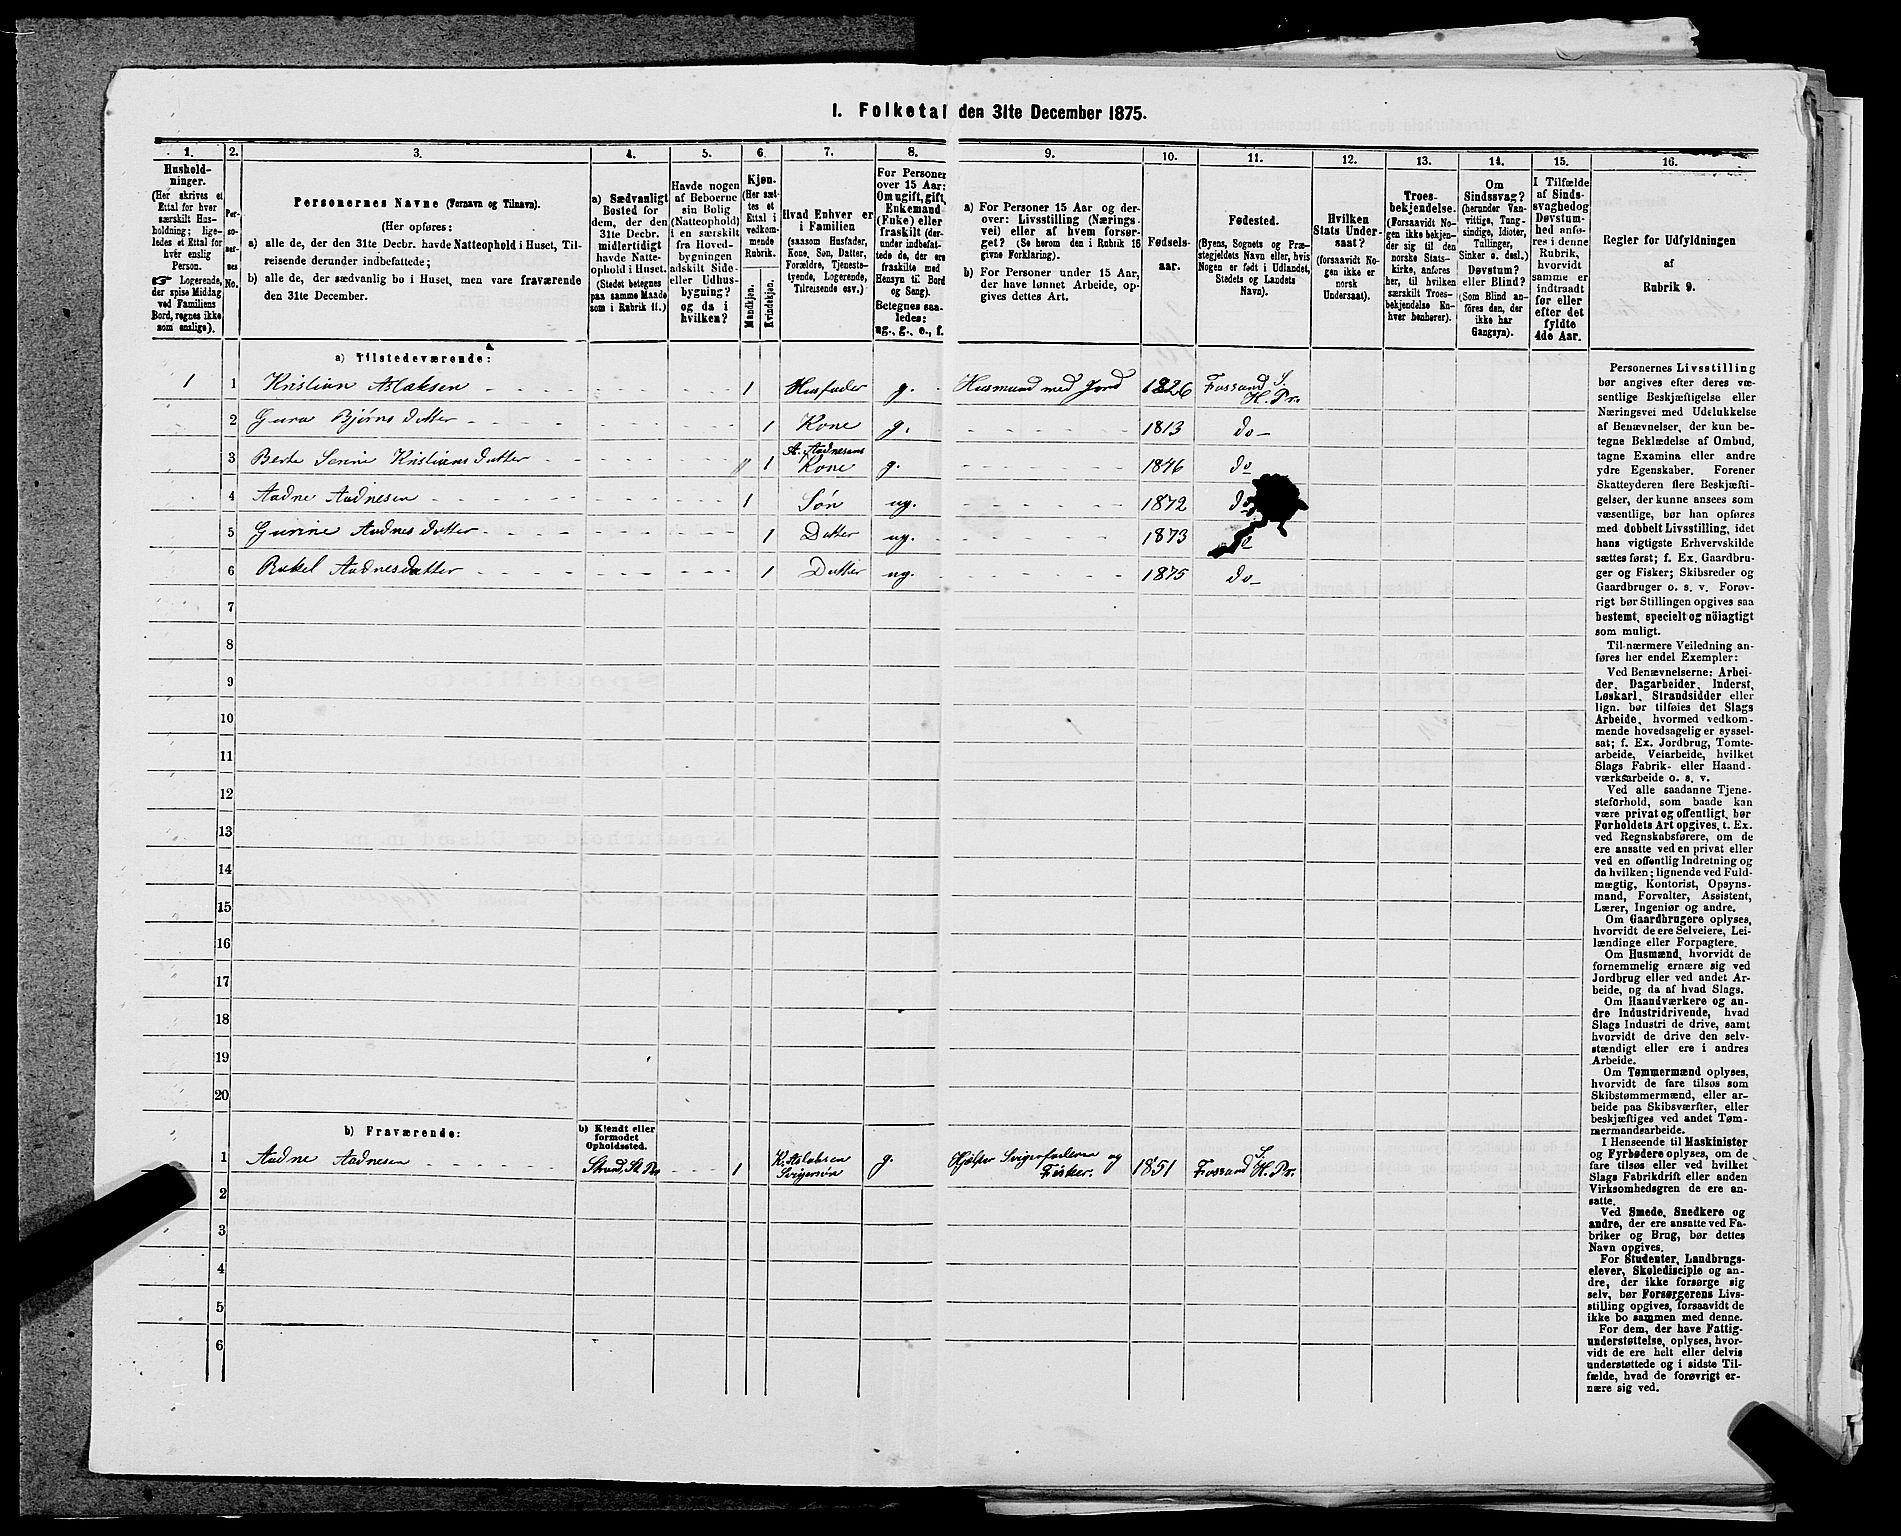 1. Folketal den 31te December 1875.
1. 2. 3. 4. 5. 6. 7. 8. 9. 10. 11. 12. 13. 14. 15. 16.
Hushold-
ninger.
(Her skrives et
Ettal for hver
særskilt Hus-
holdning; lige-
ledes et Ettal for
hver enslig
Person.
☞ Logerende,
der spise Middag
ved Familiens
Bord, regnes ikke
som enslige).
Per-
soner-
nes
No.
Personernes Navne (Fornavn og Tilnavn).
(Her opføres:
a) alle de, der den 31te Decbr. havde Natteophold i Huset, Til-
reisende derunder indbefattede;
b) alle de, der sædvanlig bo i Huset, men vare fraværende
den 31te December.
a) Sædvanligt
Bosted for
dem, der den
31te Decbr.
midlertidigt
havde Natte-
ophold i Huset.
(Stedet betegnes
paa samme Maade
som i Rubrik 11.)
Havde nogen
af Beboerne
sin Bolig
(Natteophold)
i en særskilt
fra Hoved-
bygningen
adskilt Side-
eller Udhus-
bygning?
og da i
hvilken?
Kjøn.
(Her sæt-
tes et
Ettal i
vedkom-
mende
Rubrik.
Mandkjøn.
Kvindekjøn.
Hvad Enhver er
i Familien
(saasom Husfader,
Kone, Søn, Datter,
Forældre, Tjeneste-
tyende, Logerende,
Tilreisende osv.)
For Personer
over 15 Aar:
Om ugift, gift,
Enkemand
(Enke) eller
fraskilt (der-
under indbefat-
tede de, der ere
fraskilte med
Hensyn til Bord
og Seng).
Betegnes saa-
ledes:
ug., g., e., f.
a) For Personer 15 Aar og der-
over: Livsstilling (Nærings-
vei) eller af hvem forsør-
get? (Se herom den i Rubrik 16
givne Forklaring).
b) For Personer under 15 Aar,
der have lønnet Arbeide, op-
gives dettes Art.
Fødsels-
aar.
Fødested.
(Byens, Sognets og Præ-
stegjeldets Navn eller, hvis
Nogen er født i Udlandet,
Stedets og Landets
Navn).
Hvilken
Stats Under-
saat?
(forsaavidt No-
gen ikke er
norsk
Undersaat).
Troes-
bekjendelse.
(Forsaavidt No-
gen ikke bekjen-
der sig til den
norske Stats-
kirke, anføres
her, til hvilken
særskilt Troes-
bekjendelse En-
hver henhører).
Om
Sindssvag?
(herunder Van-
vittige, Idioter,
Tullinger,
Sinker o. desl.)
Døvstum?
eller Blind?
(Som Blind an-
føres den, der
ikke har
Gangsyn).
I Tilfælde
af Sinds-
svaghed og
Døvstum-
hed anfø-
res i denne
Rubrik,
hvorvidt
samme er
indtraadt
før eller
efter det
fyldte
4de Aar.
Regler for Udfyldningen
af
Rubrik 9.
a) Tilstedeværende:
1 1 Kristian Aslaksen 1 Husfader g. Husmand med Jord 1826 Fossand S. H. Pr.
2 Guro Bjørns Datter 1 Kone g. 1813 do
3 Berte Serine Kristians Datter 1 A. Aadnesens Kone g. 1846 do
4 Aadne Aadnesen 1 Søn ug. 1872 do
5 Gurine Aadnes Datter 1 Datter ug. 1873
6 Rakel Aadnesdatter 1 Datter ug. 1875 do
7
8
9
10
11
12
13
14
15
16
17
18
19
20
b) Fraværende:
b) Kjendt eller
formodet
Opholdssted.
1 Aadne Aadnesen Strand, St. Pr. 1 K. Aslaksen Svigersøn g. Hjælper Svigerfaderen og Fisker. 1851 Fossand S. H. Pr.
2
3
4
5
6
Personernes Livsstilling
bør angives efter deres væ-
sentlige Beskjæftigelse eller
Næringsvei med Udelukkelse
af Benævnelser, der kun be-
tegne Beklædelse af Ombud,
tagne Examina eller andre
ydre Egenskaber. Forener
Skatteyderen flere Beskjæfti-
gelser, der kunne ansees som
væsentlige, bør han opføres
med dobbelt Livsstilling, idet
hans vigtigste Erhvervskilde
sættes først; f. Ex. Gaardbru-
ger og Fisker; Skibsreder og
Gaardbruger o. s. v. Forøv-
rigt bør Stillingen opgives saa
bestemt, specielt og nöiagtigt
som muligt.
Til nærmere Veiledning an-
føres her endel Exempler:
Ved Benævnelserne: Arbei-
der, Dagarbeider, Inderst,
Løskarl, Strandsidder eller
lign. bør tilføies det Slags
Arbeide, hvormed vedkom-
mende hovedsagelig er syssel-
sat; f. Ex. Jordbrug, Tomte-
arbeide, Veiarbeide, hvilket
Slags Fabrik- eller Haand-
værksarbeide o. s. v.
Ved alle saadanne Tjene-
steforhold, som baade kan
være privat og offentligt, bør
Forholdets Art opgives, t. Ex.
ved Regnskabsførere, om de
ere ansatte ved en privat eller
ved en offentlig Indretning og
da hvilken; lignende ved Fuld-
mægtig, Kontorist, Opsyns-
mand, Forvalter, Assistent,
Lærer, Ingeniør og andre.
Om Gaardbrugere oplyses,
hvorvidt de ere Selveiere, Lei-
lændinge eller Forpagtere.
Om Husmænd, hvorvidt de
fornemmelig ernære sig ved
Jordbrug eller ved andet Ar-
beide, og da af hvad Slags.
Om Haandværkere og an-
dre Industridrivende, hvad
Slags Industri de drive, samt
hvorvidt de drive den selv-
stændigt eller ere i andres
Arbeide.
Om Tømmermænd oplyses,
hvorvidt de fare tilsøs som
Skibstømmermænd, eller ar-
beide paa Skibsværfter, eller
beskjæftiges ved andet Tøm-
mermandsarbeide.
I Henseende til Maskinister
og Fyrbødere oplyses, om de
fare tilsøs eller ved hvilket
Slags Fabrikdrift eller anden
Virksomhedsgren de ere an-
satte.
Ved Smede, Snedkere og
andre, der ere ansatte ved Fa-
briker og Brug, bør dettes
Navn opgives.
For Studenter, Landbrugs-
elever, Skoledisciple og an-
dre, der ikke forsørge sig
selv, bør Forsørgerens Livs-
stilling opgives, forsaavidt de
ikke bo sammen med denne.
For dem, der have Fattig-
understøttelse, oplyses, hvor-
vidt de ere helt eller delvis
understøttede og i sidste Til-
fælde, hvad de forøvrigt er-
nære sig ved.